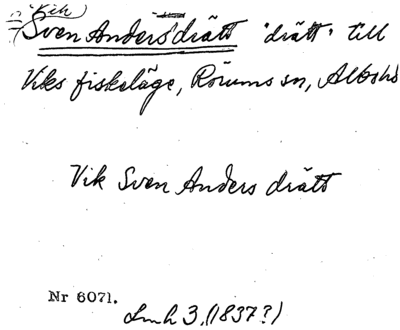 (Vik)
Sven Anders drätt 'drätt' till
Viks fiskeläge, Rörums sn, Albo hd
Vik Sven Anders drätt
Nr 6071.
Lmh 3, (1837?)